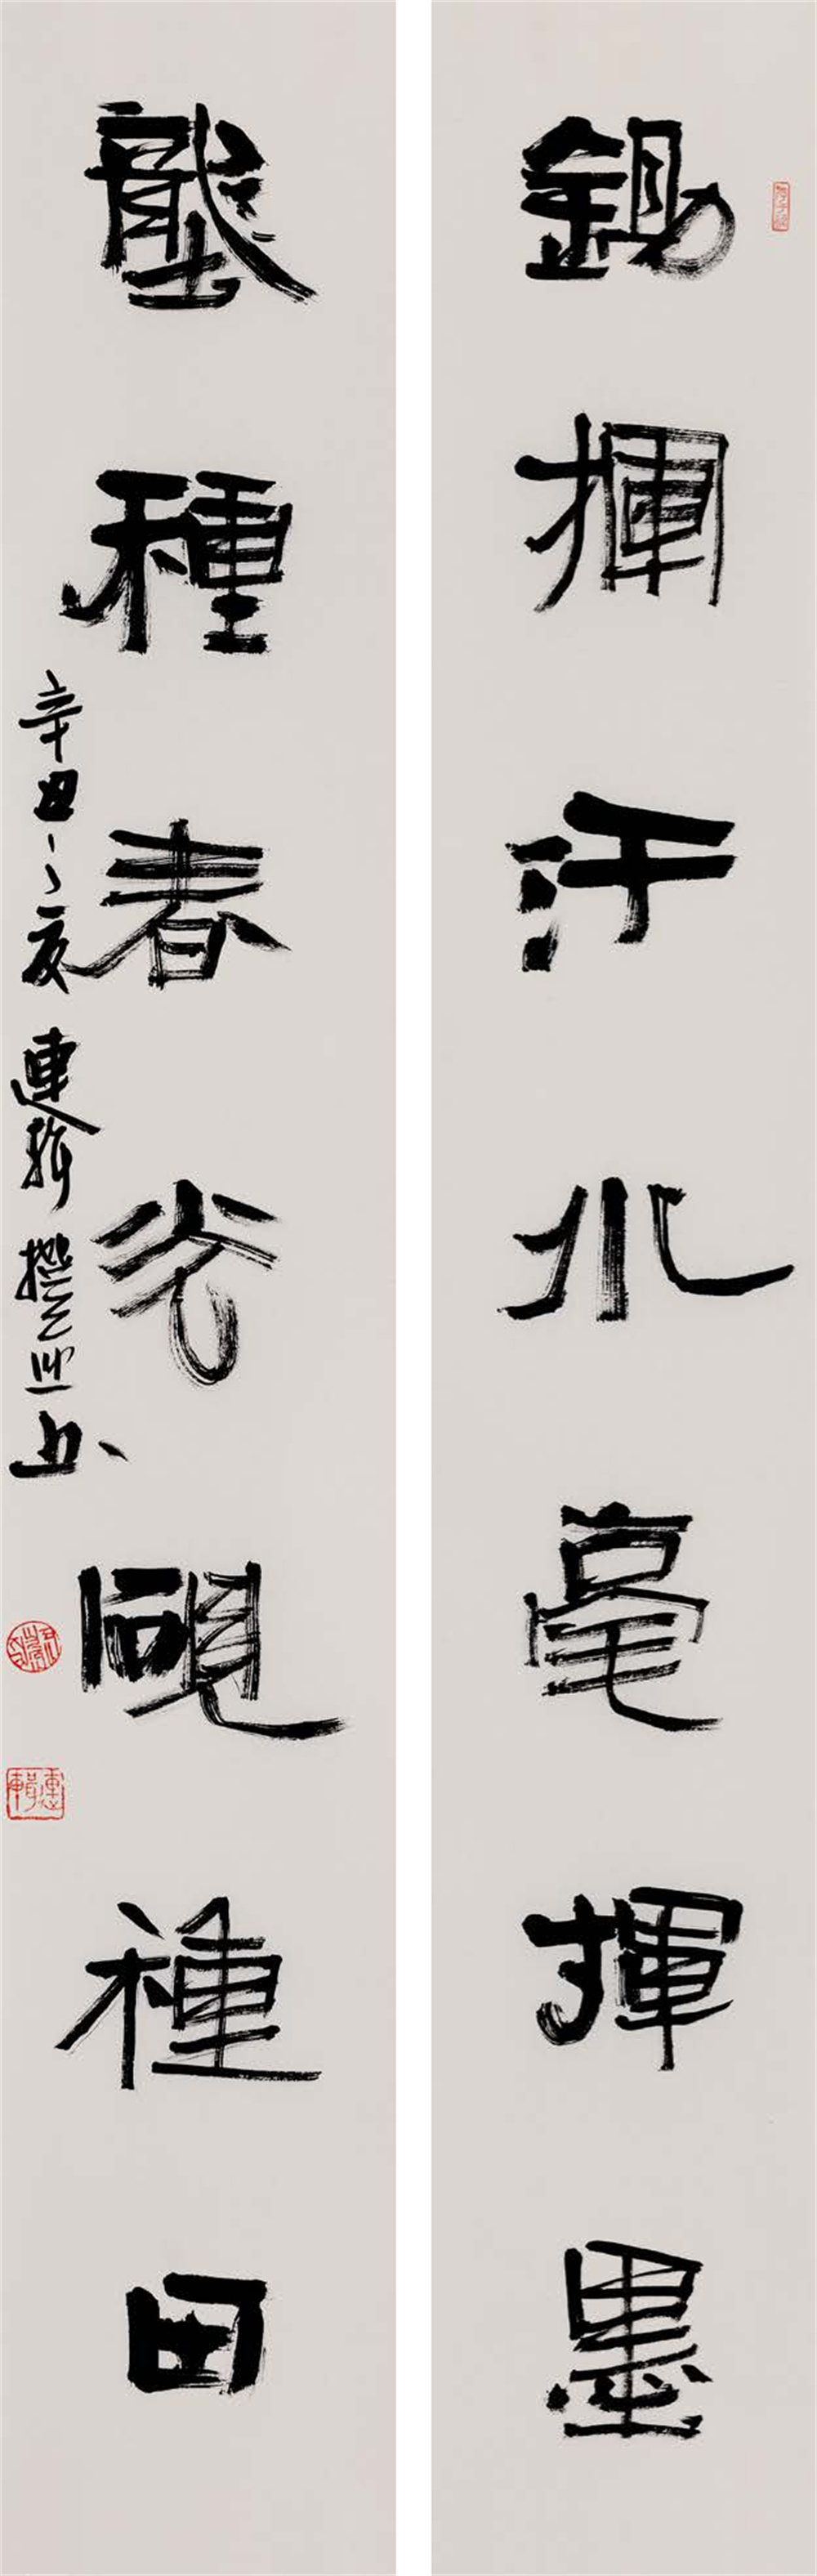 鋤揮汗水毫揮墨
壟種春光硯種田
辛丑之夏連輯撰並書
連輯